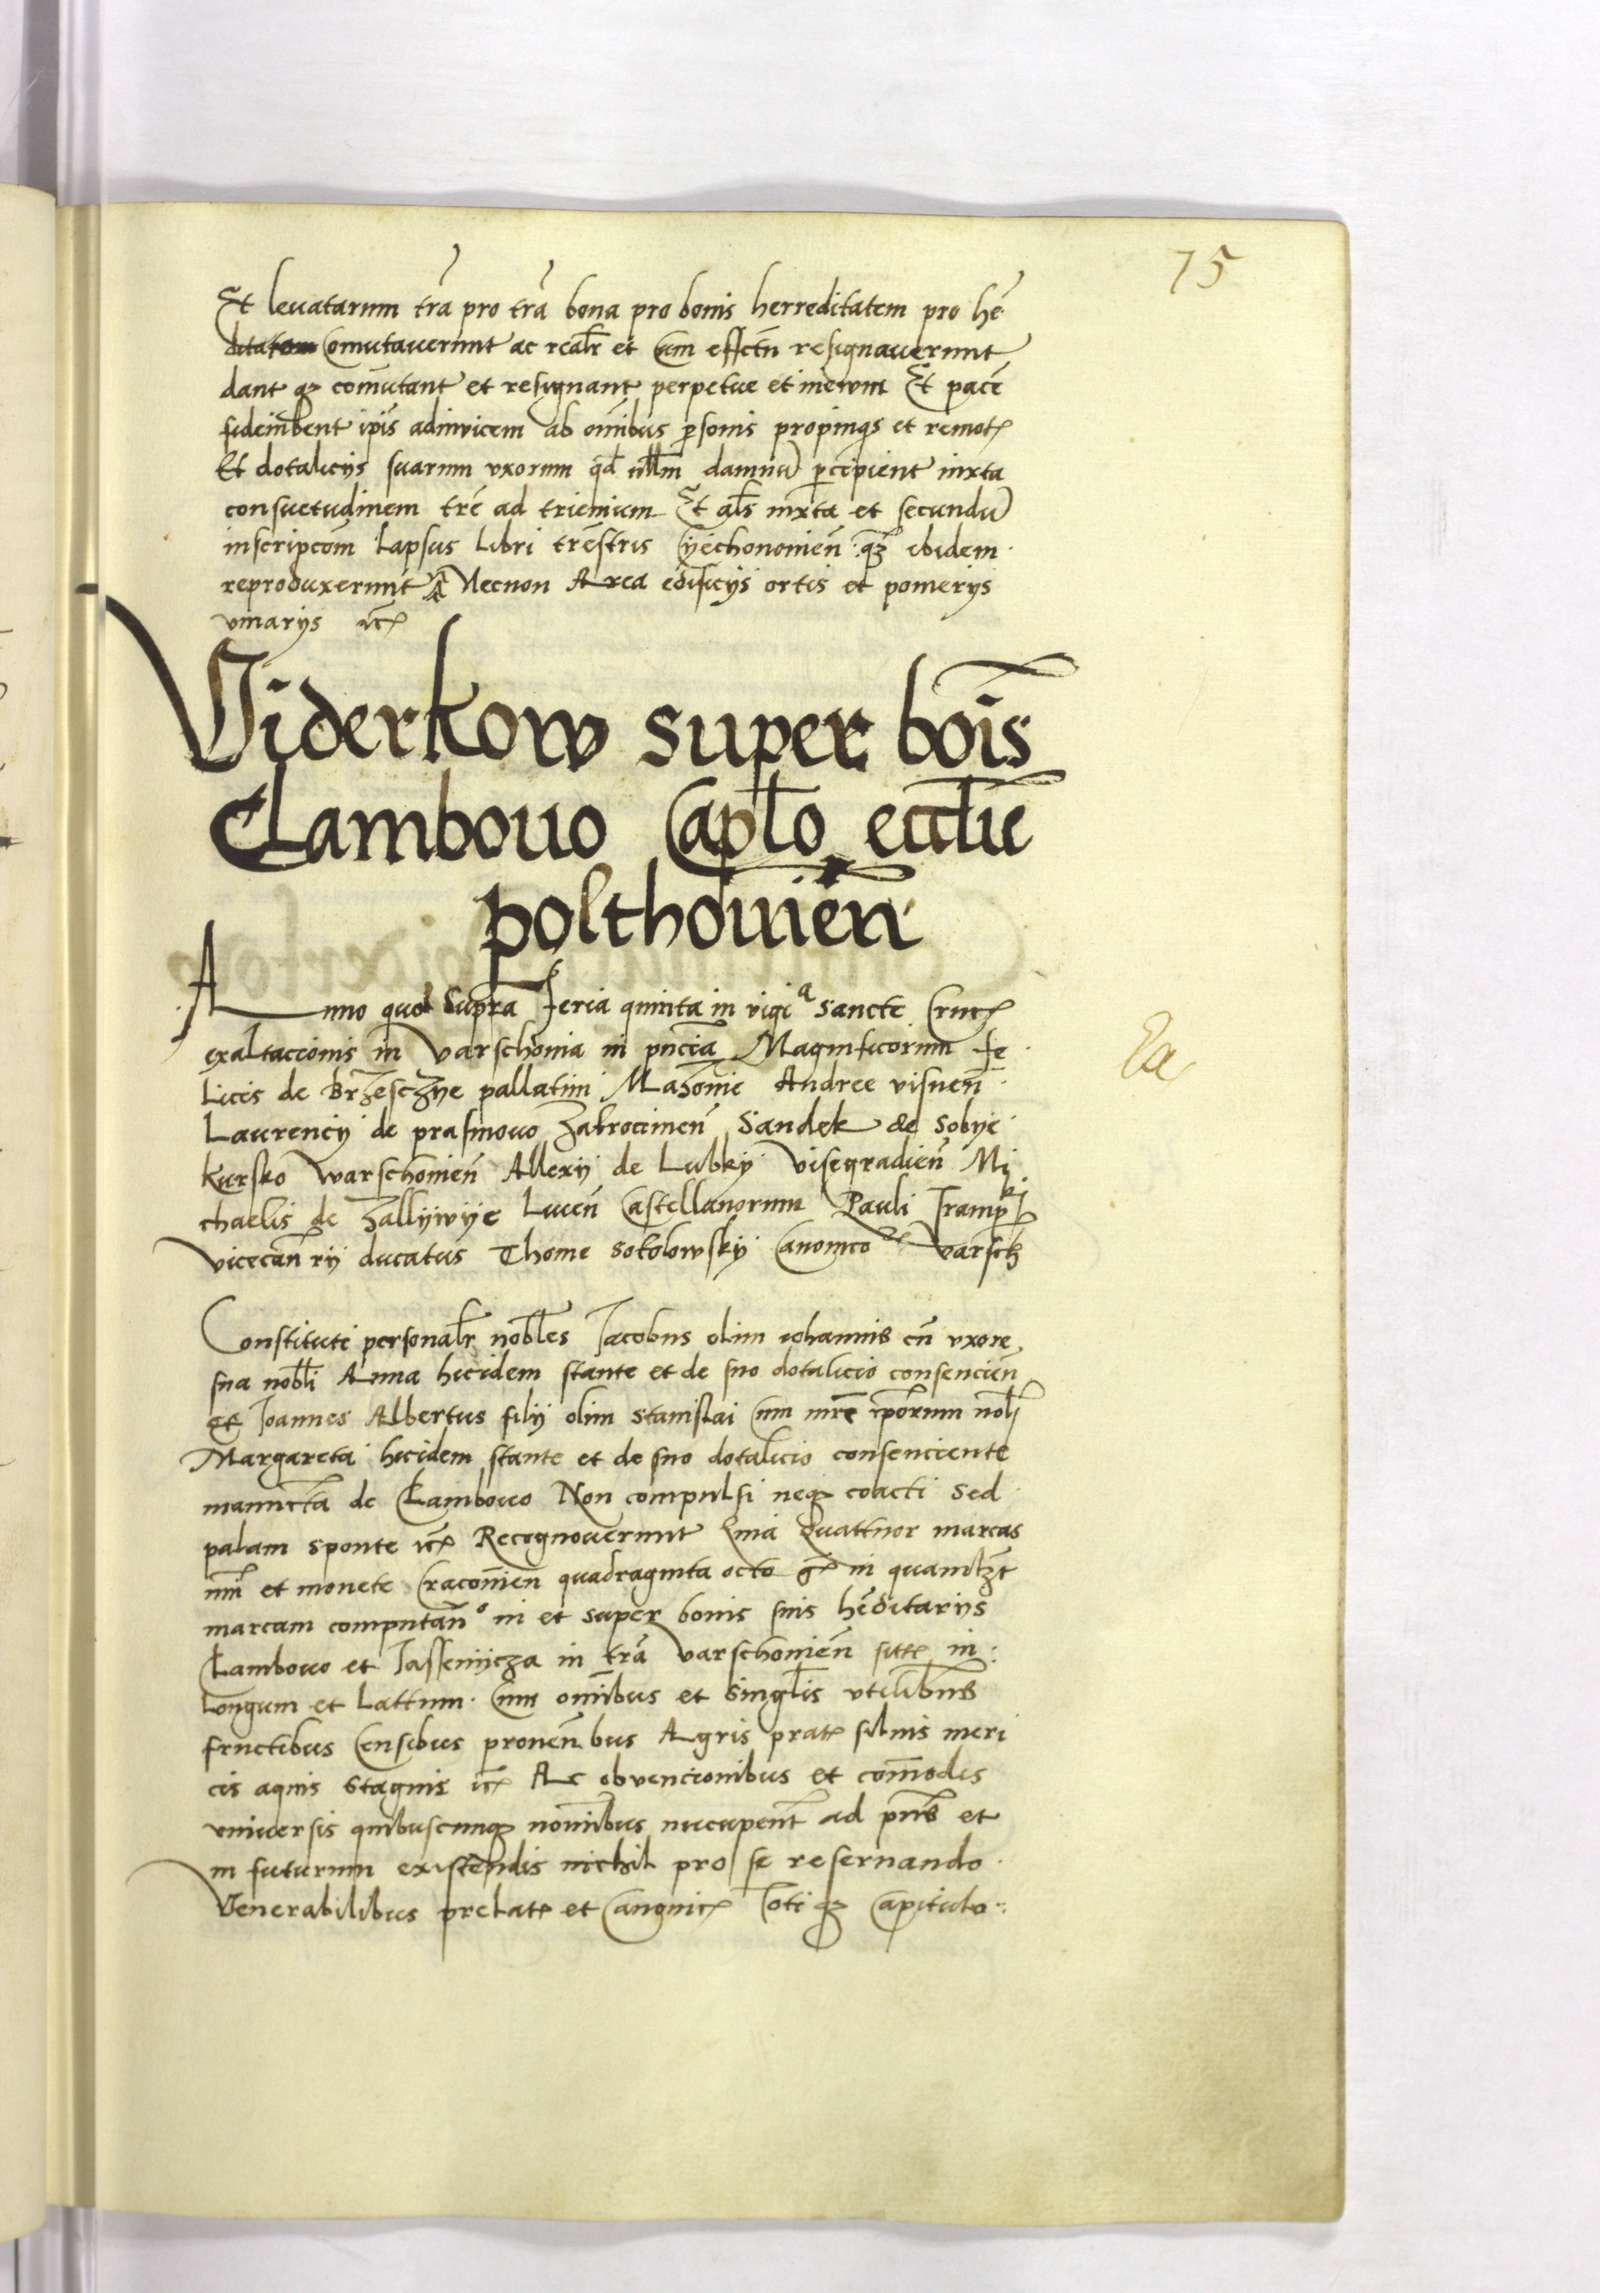 75
Et leuatarum trā pro trā bona pro bonis herreditatem pro hē
Comutaverunt ac realr et cum effctu resignaverunt
dant qz comutant et resignant perpetue et in evum Et pacē
fideiubent ipis adinvicem ab omibus psonis propinqs et remotꝫ
Et dotalicijs suarum vxorum qd nllm damnu pcipient iuxta
consuetudinem trē ad trienium Et als iuxta et secundu
inscripcom Lapsus Libri trēstris Cyechonouien ibidem
reproduxerunt Necnon Area edificijs ortis et pomerijs
vinarijs etc
Viderkow super bois
Clambouo Caplo ecclie
polthouien
Anno quo Supra Feria quinta in vigia Sancte Crucꝫ
exaltaccionis in Varschouia in pncia Magnificorum Fe
Licis de Brzesczye pallatini Mazouie Andree visnen
Laurencij de prasmovo Zakrocimen Sandek de Sobye
kursko Warschouien Allexij de Lubky Visegradien Mi
chaelis de Zallijwije Liuen Castellanorum Pauli Trampki
vicecan rij ducatus Thome Sokolowskij Canonico Varsch
Constituti personalr nobles Jacobus olim iohannis cū vxore
sua nobli Anna hicidem stante et de suo dotalicio consencien
et Joannes Albertus filij olim Stanislai cum mre ipsorum nobli
Margareta hicidem stante et de suo dotalicio consenciente
maniucta de Clambovo Non compulsi neqz coacti Sed
palam sponte etc Recognouerunt Quia Quattuor marcas
num et monete Cracouien quadraginta octo gꝫ in quamlzt
marcam computan in et super bonis suis hēditarijs
Clambovo et Jassenijcza in trā Varschouien sittꝫ in
Longum et Lattum cum omibus et Singlis vtilibus
fructibus Censibus prouen bus Agris pratꝫ siluis meri
cis aquis Stagnis etc Ac obvencionibus et comodis
vniversis quibuscunqz nomibus nucupent ad pns et
in futurum existendis nichil pro se reseruando
Venerabilibus prelatꝫ et Canonicꝫ totiqz Capitulo